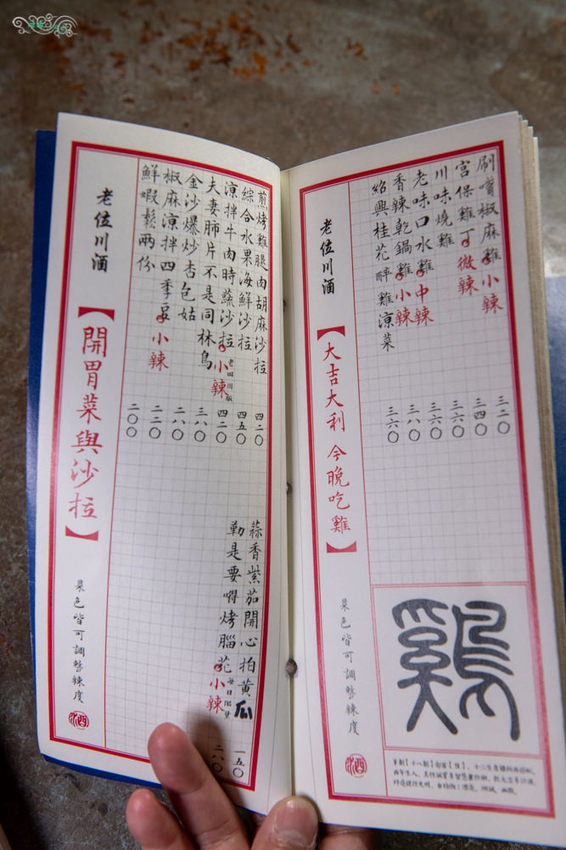 刷嘴椒麻雞 小辣 三二〇
宮保雞丁 微辣 三四〇
川味燒雞 三六〇
老味口水雞 中辣 三六〇
香辣乾鍋雞 小辣 三六〇
紹興桂花醉雞 涼菜 三六〇
老位川酒
【大吉大利 今晚吃雞】
菜色皆可調整辣度
雞
煎烤雞腿肉胡麻沙拉 四二〇
綜合水果海鮮沙拉 四五〇
涼拌牛肉時蔬沙拉 小辣 四二〇
夫妻肺片不是同林鳥 三八〇
金沙爆炒杏包菇 二八〇
椒麻涼拌四季豆 小辣 二二〇
鮮蝦鬆兩份 二〇〇
蒜香紫茄開心拍黃瓜 一五〇
勤是要嚐烤腦花 小辣 二六〇
老位川酒
【開胃菜與沙拉】
菜色皆可調整辣度